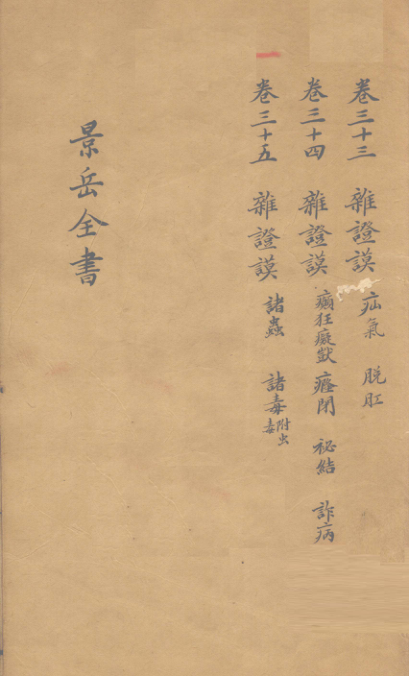 卷三十三 雜證謨 疝氣 脫肛
卷三十四 雜證謨 癲狂癡獃 癃閉 秘結 詐病
卷三十五 雜證謨 諸蟲 諸毒 附虫毒
景岳全書